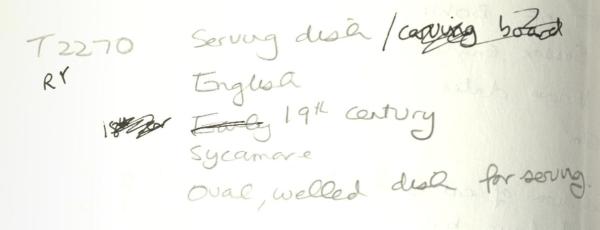 T2270 Serving dish / carving board
RR English
Early 19th century
Sycamore
Oval, welled dish for serving.